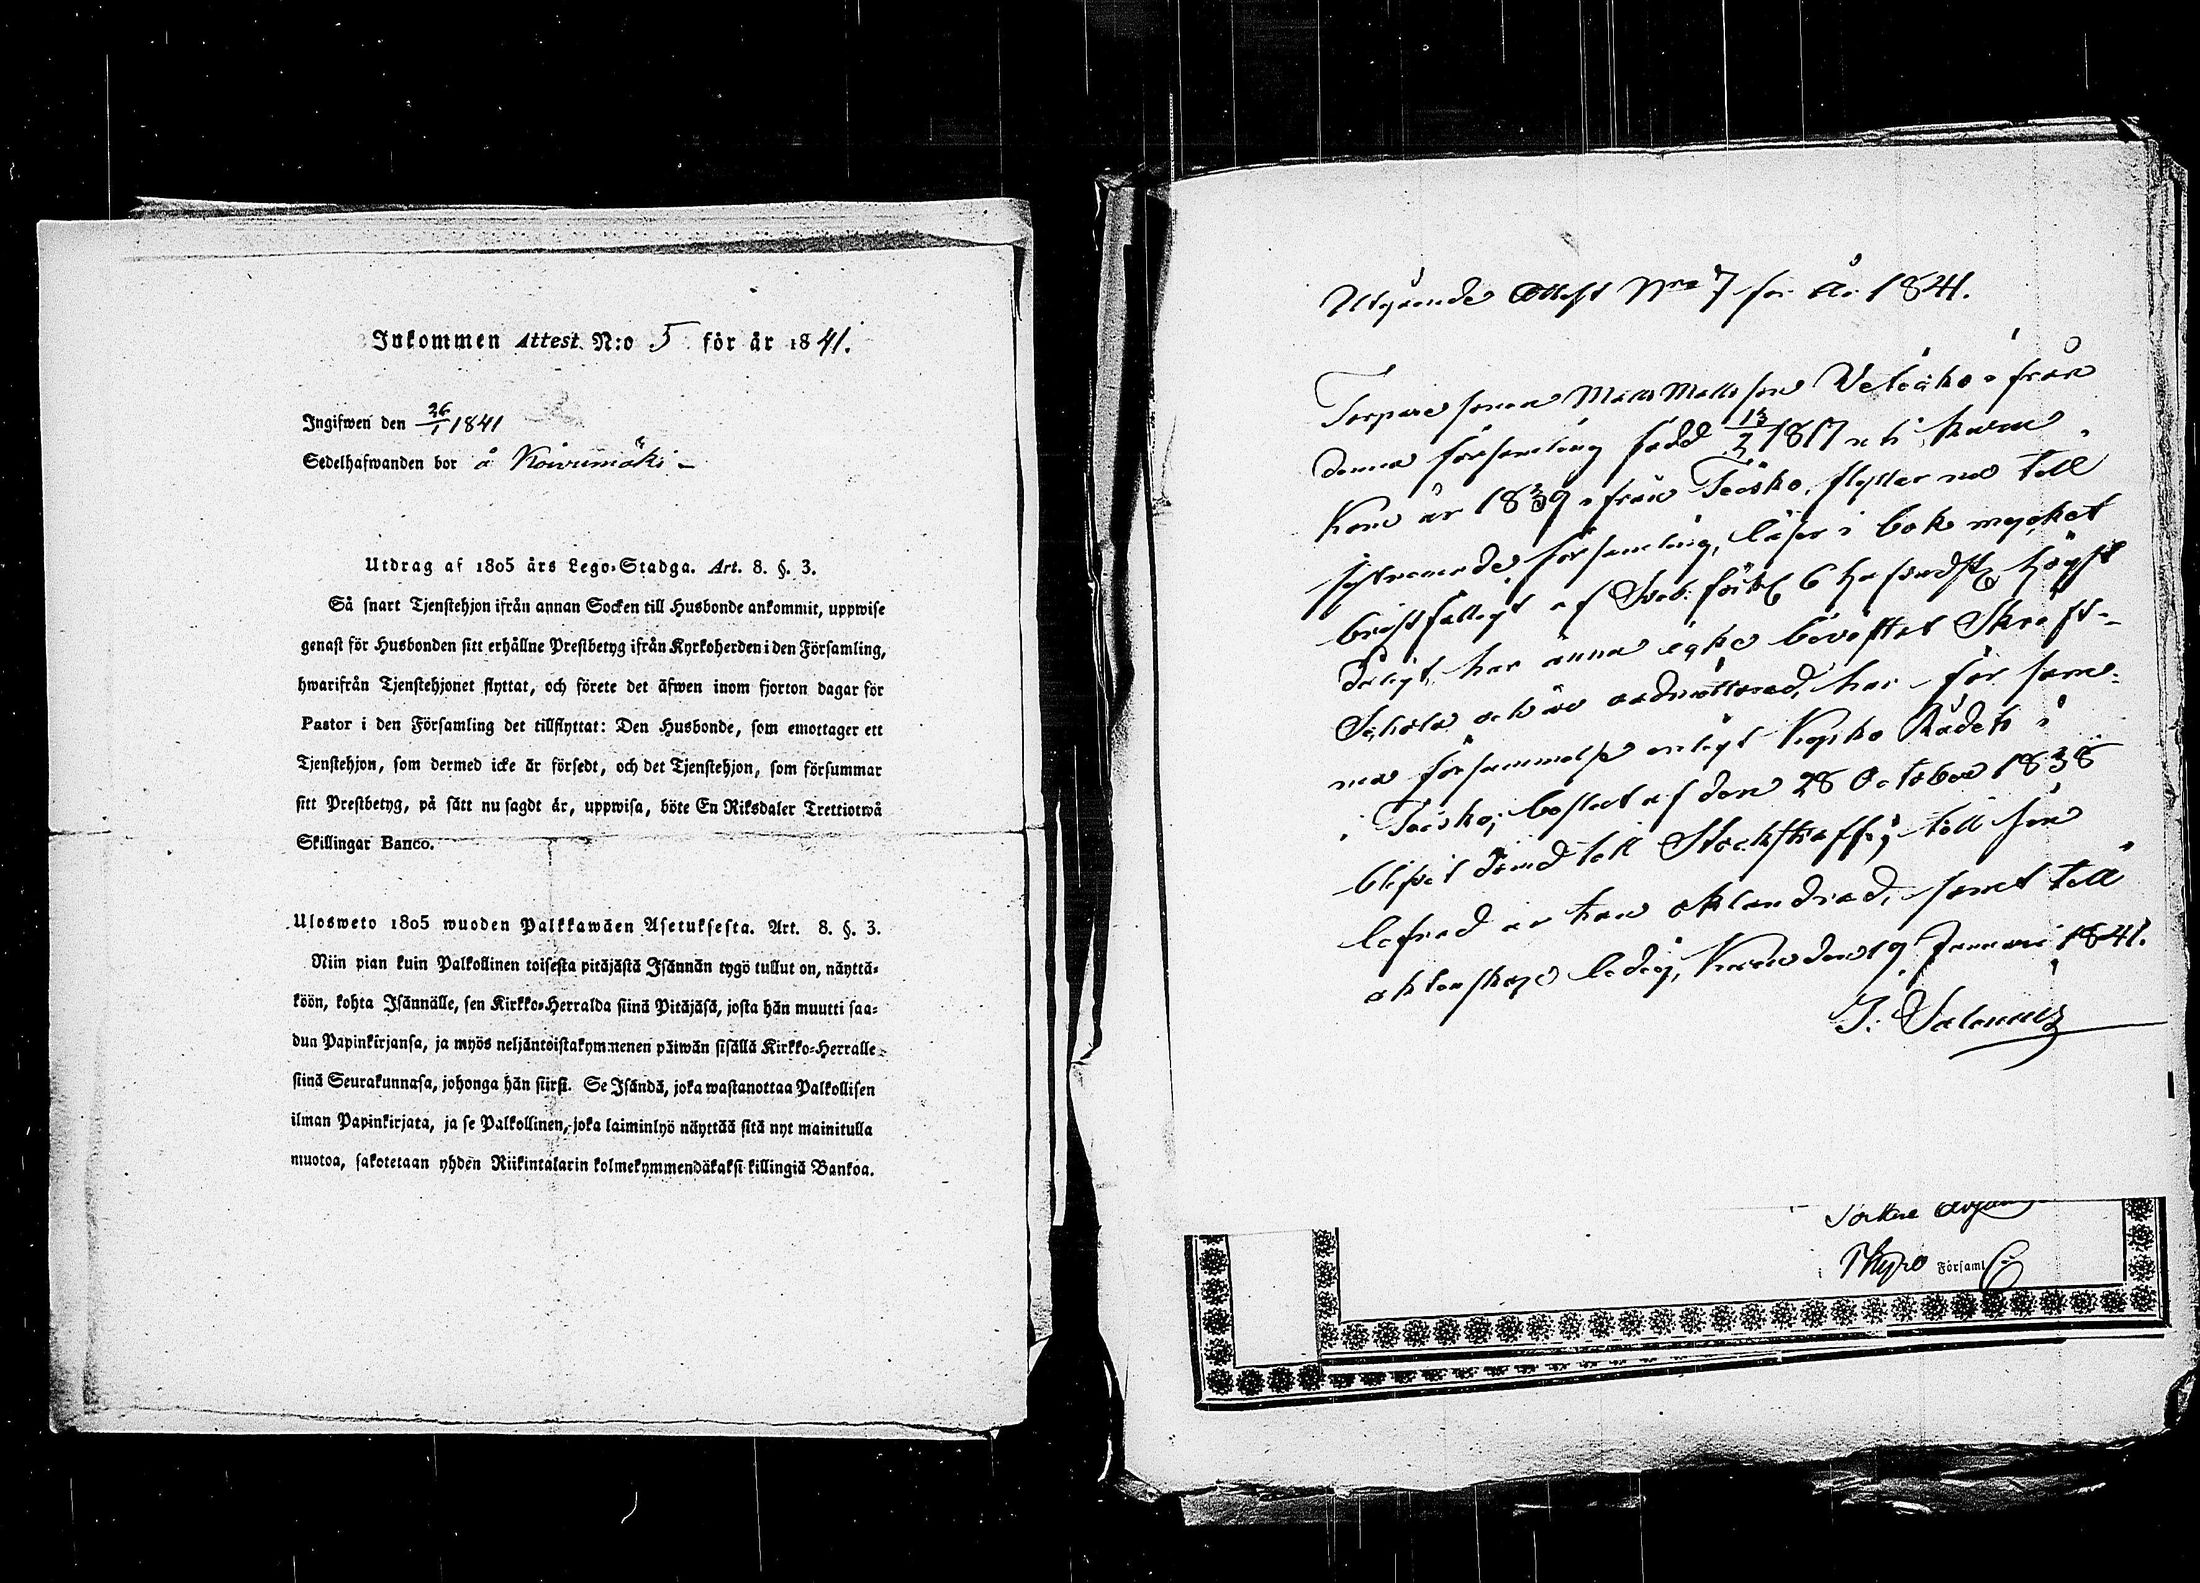 Inkommen Attest. N:o 5 för år 1841.
Ingifwen den 26/1 1841
Sedelhafwanden bor å Koivumäki
Utdrag af 1805 års Lego-Stadga. Art. 8. §. 3.
Så snart Tjenstehjon ifrån annan Socken till Husbonde ankommit, uppwise
genast för Husbonden sitt erhållne Prestbetyg ifrån Kyrkoherden i den Församling,
hwarifrån Tjenstehjonet flyttat, och förete det äfwen inom fjorton dagar för
Pastor i den Församling det tillflyttat: Den Husbonde, som emottager ett
Tjenstehjon, som dermed icke är försedt, och det Tjenstehjon, som försummar
sitt Prestbetyg, på sätt nu sagdt är, uppwisa, böte En Riksdaler Trettiotwå
Skillingar Banco.
Ulosweto 1805 wuoden Palkkawäen Asetuksesta. Art. 8. §. 3.
Niin pian kuin Palkollinen toisesta pitäjästä Isännän tygö tullut on, näyttä-
köön, kohta Isännälle, sen Kirkko-Herralda siinä Pitäjäsä, josta hän muutti saa-
dun Papinkirjansa, ja myös neljäntoistakymmenen päiwän sisällä Kirkko-Herralle
siinä Seurakunnasa, johonga hän siirsi. Se Isändä, joka wastanottaa Palkollisen
ilman Papinkirjata, ja se Palkollinen, joka laiminlyö näyttää sitä nyt mainitulla
muotoa, sakotetaan yhden Riikintalarin kolmekymmendäkaksi killingiä Bankoa.
Utgående Attest Nro 7 för År 1841.
Torpare sonen Matts Mattsson ifrån
denna församling född 13/2 1817 och
kom år 1839 ifrån Teisko, flyttar nu till
församling, läser i bok mycket
bristfälligt af 6 högst
dåligt, har ännu icke bevistat Skrift-
Schola och är oadmitterad, har för
ma försammelse enligt Kyrko Rådets i
i Teisko beslut af den 28 October 1838
blifvit dömd till Stockstraff, till sin
lefnad är han oklandrad, samt till
äktenskap ledig, den 19 Januari 1841.
J. Salenius
i Kyro Församl